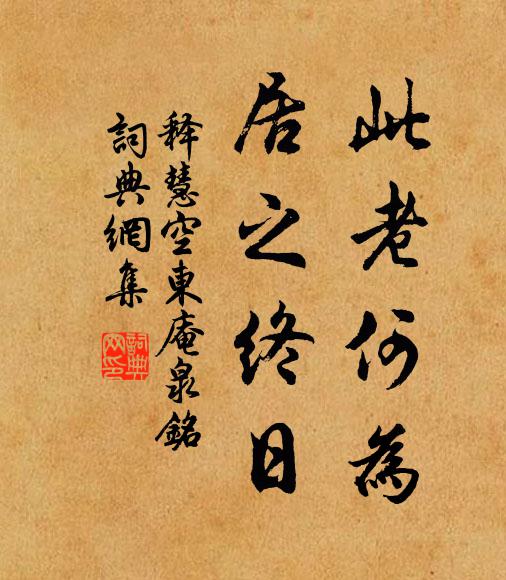 此老何為
居之終日
释慧空東庵泉銘
詞典網集
詞典
网印